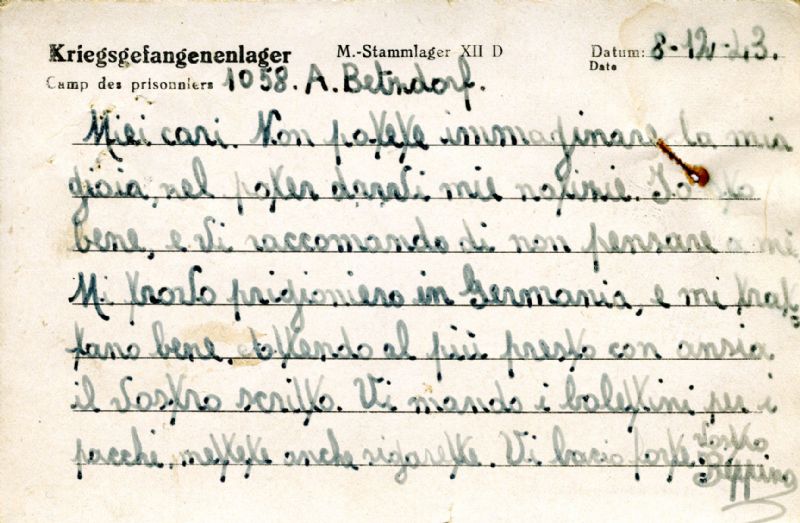 Kriegsgefangenenlager M.-Stammlager XII D Datum: 8-12-43.
Date
Camp des prisonniers 1058. A. Betzdorf.
Miei cari. Non potete immaginare la mia
gioia, nel poter darvi mie notizie. Io sto
bene, e vi raccomando di non pensare a me.
Mi trovo prigioniero in Germania, e mi trat=
tano bene. Attendo al più presto con ansia
il vostro scritto. Vi mando i balettini per i
pacchi, mettete anche sigarette. Vi bacio forte. vostro
Beppino